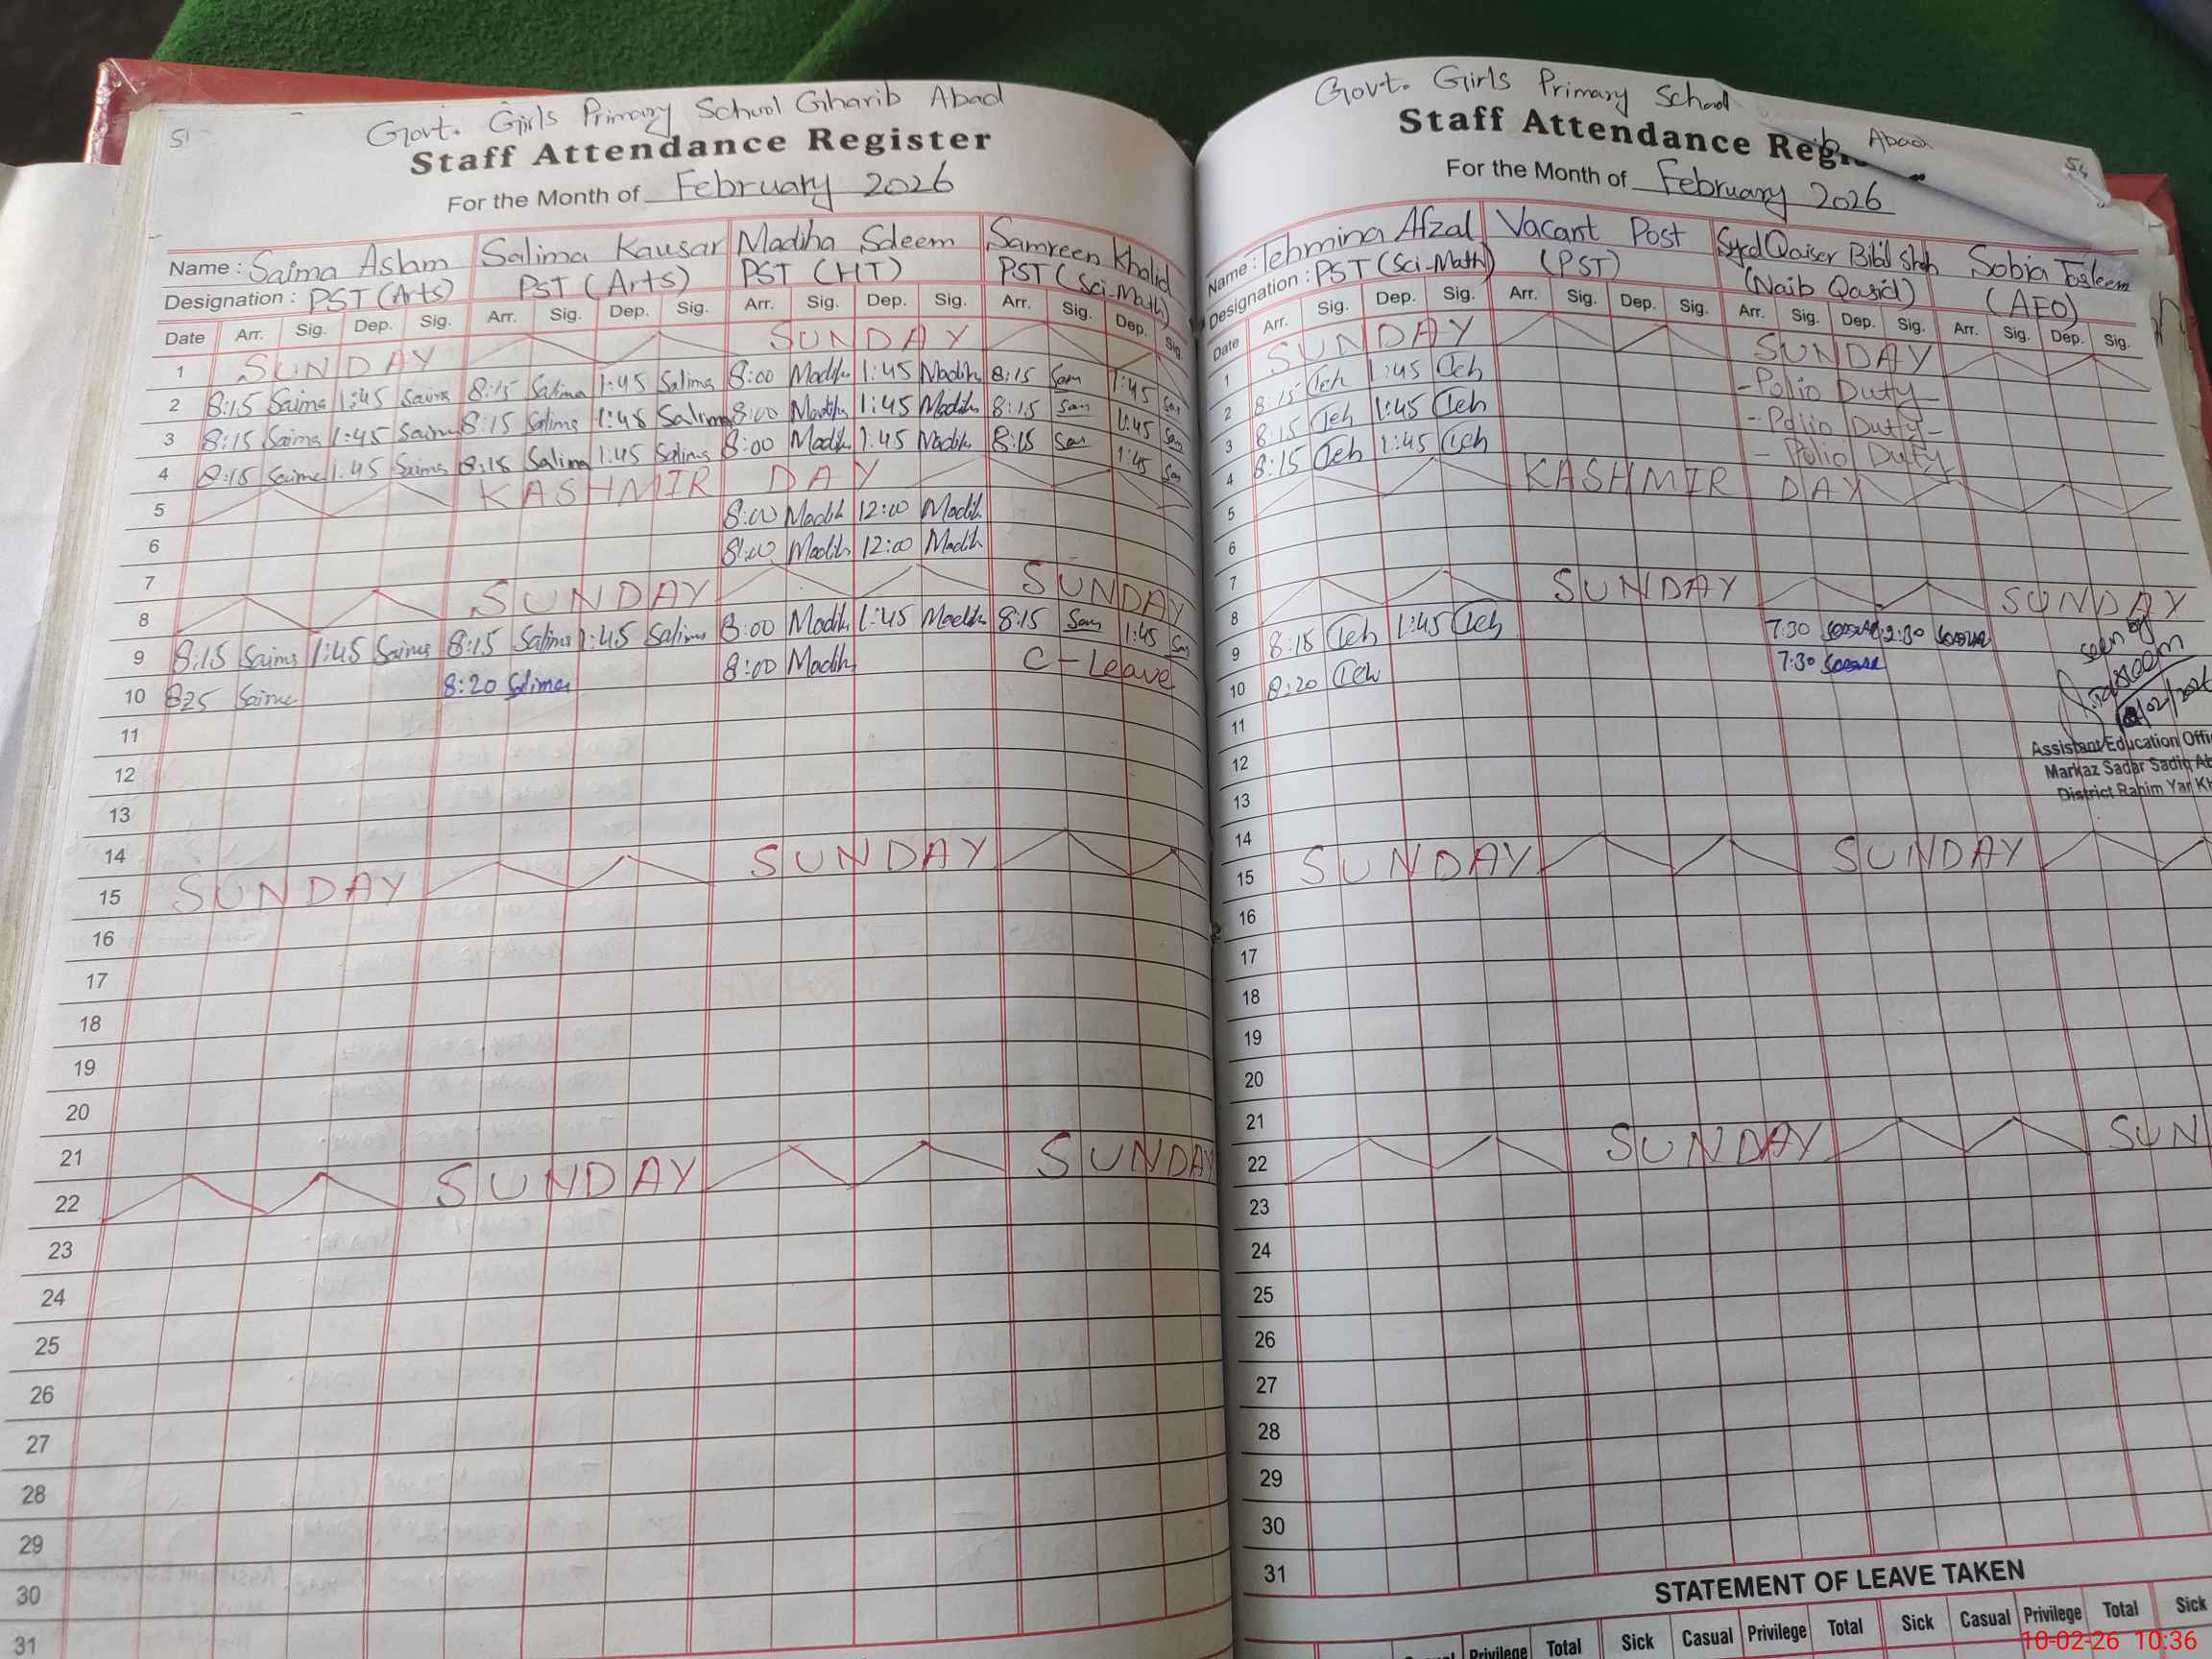 51
Govt. Girls Primary School Gharib Abad
Staff Attendance Register
For the Month of February 2026
Name : Saima Aslam Salima Kausar Madiha Saleem Samreen Khalid
Designation : PST (Arts) PST (Arts) PST (HT) PST (Sci-Math)
Date Arr. Sig. Dep. Sig. Arr. Sig. Dep. Sig. Arr. Sig. Dep. Sig. Arr. Sig. Dep. Sig.
1 SUNDAY SUNDAY
2 8:15 Saima 1:45 Saima 8:15 Salima 1:45 Salima 8:00 Madiha 1:45 Madiha 8:15 Sam 1:45 Sam
3 8:15 Saima 1:45 Saima 8:15 Salima 1:45 Salima 8:00 Madiha 1:45 Madiha 8:15 Sam 1:45 Sam
4 8:15 Saima 1:45 Saima 8:15 Salima 1:45 Salima 8:00 Madih 1:45 Madih 8:15 Sam 1:45 Sam
5 KASHMIR DAY
6 8:00 Madih 12:00 Madih
7 8:00 Madih 12:00 Madih
8 SUNDAY SUNDAY
9 8:15 Saima 1:45 Saima 8:15 Salima 1:45 Salima 8:00 Madih 1:45 Madih 8:15 Sam 1:45 Sam
10 825 Saima 8:20 Salima 8:00 Madih C-Leave
11
12
13
14
15 SUNDAY SUNDAY
16
17
18
19
20
21
22 SUNDAY SUNDAY
23
24
25
26
27
28
29
30
31
Govt. Girls Primary School
Abad
Staff Attendance Regi
54
For the Month of February 2026
Name : Tehmina Afzal Vacant Post Syed Qaiser Sobia Tasleem
Designation : PST (Sci-Math) (PST) (Naib Qasid) (AEO)
Date Arr. Sig. Dep. Sig. Arr. Sig. Dep. Sig. Arr. Sig. Dep. Sig. Arr. Sig. Dep. Sig.
1 SUNDAY SUNDAY
2 8:15 Teh 1:45 Teh - Polio Duty -
3 8:15 Teh 1:45 Teh - Polio Duty -
4 8:15 Teh 1:45 Teh - Polio Duty
5 KASHMIR DAY
6
7
8 SUNDAY SUNDAY
9 8:15 Teh 1:45 Teh 7:30 2:30
10 8:20 Teh 7:30
seen by
Tasleem
/02/2026
Assistant Education Offi
Markaz Sadar Sadiq Ab
District Rahim Yar Kh
11
12
13
14
15 SUNDAY SUNDAY
16
17
18
19
20
21
22 SUNDAY SUN
23
24
25
26
27
28
29
30
31
STATEMENT OF LEAVE TAKEN
Privilege Total Sick Casual Privilege Total Sick Casual Privilege Total Sick
10-02-26 10:36